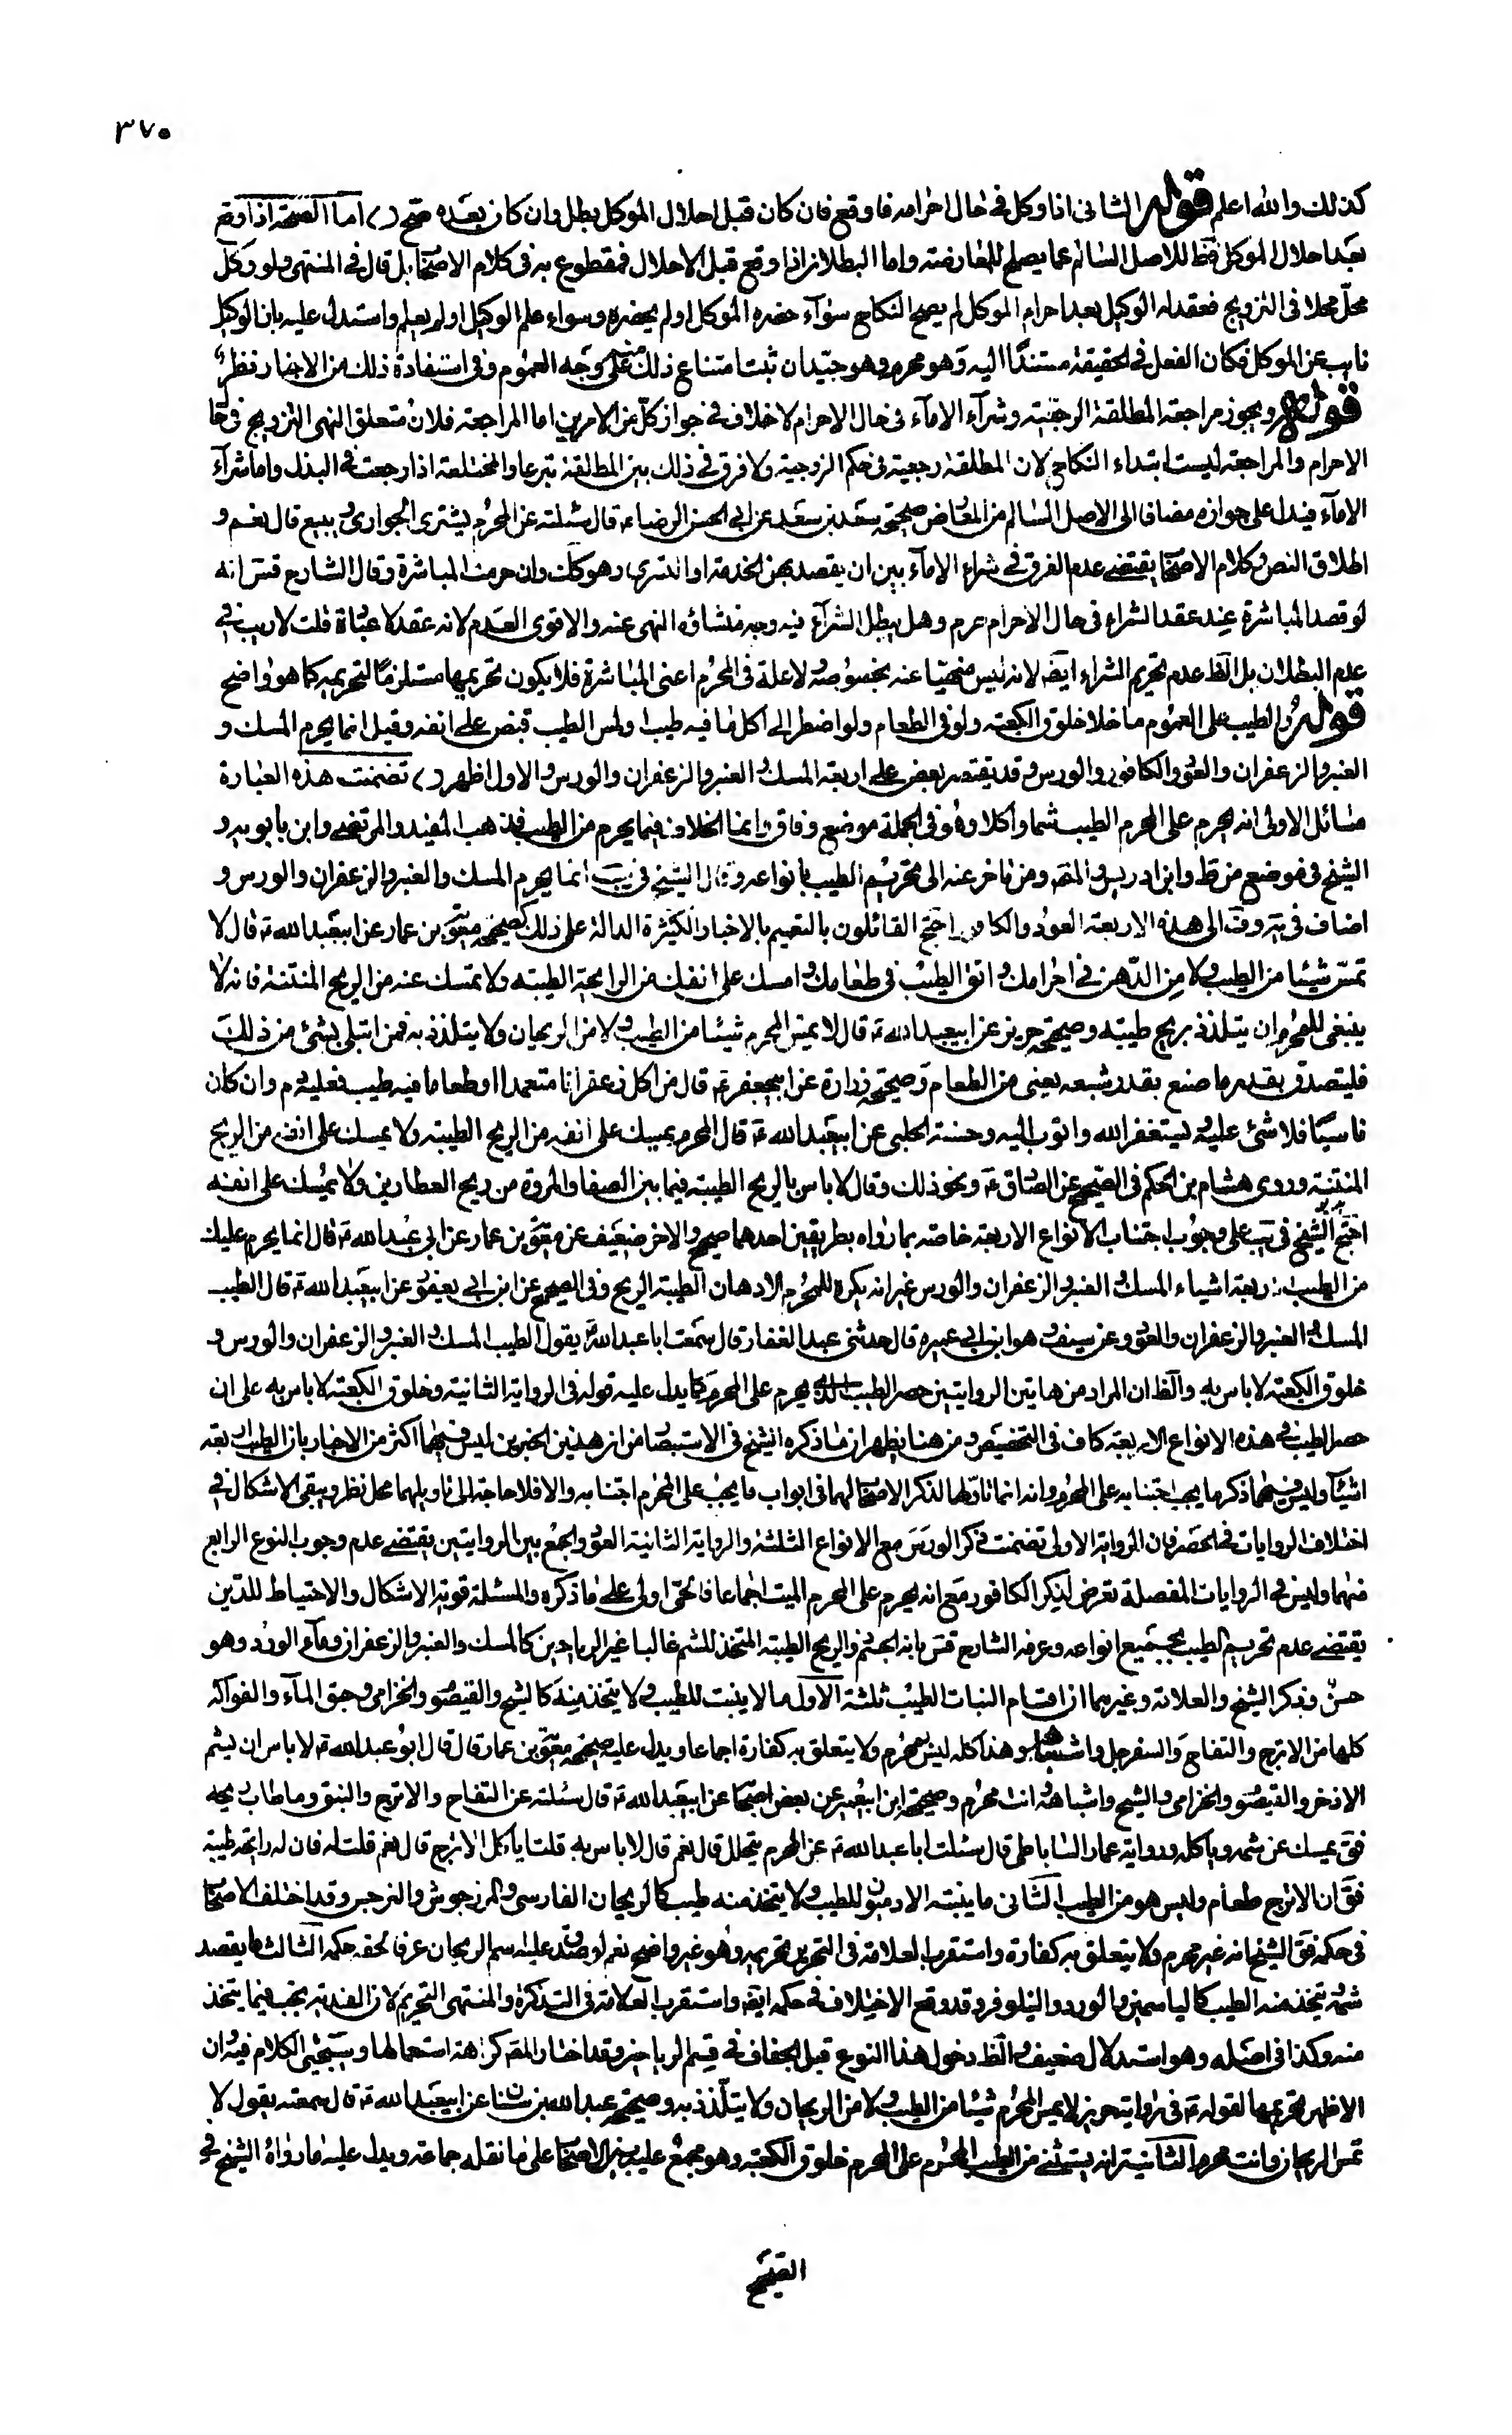 ٣٧٥
كذلك والله اعلم قوله الثانى اذا وكل فى حال احرامه فاوقع فان كان قبل احلال الموكل بطل وان كان بعده صح () اما الصحة اذا وقع
بعد احلال الموكل فظ للاصل السالم عما يصلح للمعارضة واما البطلان اذا وقع قبل الاحلال فمقطوع به فى كلام الاصحاب بل قال فى المنتهى ولو وكل
محل محلا فى التزويج فعقد له الوكيل بعد احرام الموكل لم يصح النكاح سواء حضره الموكل او لم يحضره وسواء علم الوكيل او لم يعلم واستدل عليه بان الوكيل
نايب عن الموكل فكان الفعل فى الحقيقة مستندا اليه وهو محرم وهو جيد ان ثبت امتناع ذلك على وجه العموم وفى استفادة ذلك من الاخبار نظر
قوله ويجوز مراجعة المطلقة الرجعية وشراء الاماء فى حال الاحرام لا خلاف فى جواز كل من الامرين اما المراجعة فلان متعلق النهى التزويج فى حا
الاحرام والمراجعة ليست ابتداء النكاح لان المطلقة رجعية فى حكم الزوجية ولا فرق فى ذلك بين المطلقة تبرعا والمختلعة اذا رجعت فى البذل واما شراء
الاماء فيدل على جوازه مضافا الى الاصل السالم من المعارض صحيحة سعد بن سعد عن ابى الحسن الرضا ع قال سئلته عن المحرم يشترى الجوارى ويبيع قال نعم و
اطلاق النص وكلام الاصحاب يقتضى عدم الفرق فى شراء الاماء بين ان يقصد بهن الخدمة او التسرى وهو كك وان حرمت المباشرة وقال الشارح قدس انه
لو قصد المباشرة عند عقد الشراء فى حال الاحرام حرم وهل يبطل الشراء فيه وجه منشاؤه النهى عنه والاقوى العدم لانه عقد لا عبادة قلت لا ريب فى
عدم البطلان بل الظ عدم تحريم الشراء ايض لانه ليس منهيا عنه بخصوصه لا علة فى المحرم اعنى المباشرة فلا يكون تحريمها مستلزما لتحريمه كما هو واضح
قوله والطيب على العموم ما خلا خلوق الكعبة ولو فى الطعام ولو اضطر الى اكل ما فيه طيب او لمس الطيب قبض على انفه وقيل انما يحرم المسك و
العنبر والزعفران والعود والكافور والورس وقد يقتصر بعض على اربعة المسك والعنبر والزعفران والورس والاول اظهر () تضمنت هذه العبارة
مسائل الاولى انه يحرم على المحرم الطيب شما واكلا وهو فى الجملة موضع وفاق وانما الخلاف فيما يحرم من الطيب فذهب المفيد والمرتضى وابن بابويه و
الشيخ فى موضع من ط وابن ادريس والمص ومن تاخر عنه الى تحريم الطيب بانواعه وقال الشيخ فى يب انما يحرم المسك والعنبر والزعفران والورس و
اضاف فى ية وف الى هذه الاربعة العود والكافور احتج القائلون بالتعميم بالاخبار الكثيرة الدالة على ذلك كصحيحة معوية بن عمار عن ابيعبد الله ع قال لا
تمس شيئا من الطيب ولا من الدهن فى احرامك واتق الطيب فى طعامك وامسك على انفك من الرايحة الطيبة ولا تمسك عنه من الريح المنتنة فانه لا
ينبغى للمحرم ان يتلذذ بريح طيبة وصحيحة حريز عن ابيعبد الله ع قال لا يمس المحرم شيئا من الطيب ولا من الريحان ولا يتلذذ به فمن ابتلى بشئ من ذلك
فليتصدق بقدر ما صنع بقدر شبعه يعنى من الطعام وصحيحة زرارة عن ابيجعفر ع قال من اكل زعفرانا متعمدا او طعاما فيه طيب فعليه دم وان كان
ناسيا فلا شئ عليه ويستغفر الله واتوب اليه وحسنة الحلبى عن ابيعبد الله ع قال المحرم يمسك على انفه من الريح الطيبة ولا يمسك على انفه من الريح
المنتنة وروى هشام بن الحكم فى الصحيح عن الصادق ع ونحو ذلك وقال لا باس بالريح الطيبة فيما بين الصفا والمروة من ريح العطارين ولا يمسك على انفه
احتج الشيخ فى يب على وجوب اجتناب الانواع الاربعة خاصة بما رواه بطريقين احدهما صحيح والاخر ضعيف عن معوية بن عمار عن ابى عبد الله ع قال انما يحرم عليك
من الطيب اربعة اشياء المسك والعنبر والزعفران والورس غير انه يكره للمحرم الادهان الطيبة الريح وفى الصحيح عن ابن ابى يعفور عن ابيعبد الله ع قال الطيب
المسك والعنبر والزعفران والعود وعن سيف وهو ابن عميرة قال حدثنى عبد الغفار قال سمعت ابا عبد الله يقول الطيب المسك والعنبر والزعفران والورس و
خلوق الكعبة لا باس به والظ ان المراد من هاتين الروايتين حصر الطيب الذى يحرم على المحرم كما يدل عليه قوله فى الرواية الثانية وخلوق الكعبة لا باس به على ان
حصر الطيب فى هذه الانواع الاربعة كاف فى التخصيص ومن هنا يظهر ان ما ذكره الشيخ فى الاستبصار من ان هذين الخبرين ليس فيهما اكثر من الاخبار بان الطيب اربعة
اشياء وليس فيهما ذكر ما يجب اجتنابه على المحرم وانه انما تاولهما لذكر الاصحاب لهما فى ابواب ما يجب على المحرم اجتنابه والا فلا حاجة الى تاويلهما محل نظر ويبقى الاشكال فى
اختلاف الروايات فى الحصر فان الرواية الاولى تضمنت ذكر الورس مع الانواع الثلثة والرواية الثانية العود والجمع بين الروايتين يقتضى عدم وجوب النوع الرابع
منهما وليس فى الروايات المفصلة تعرض لذكر الكافور مع انه يحرم على المحرم الميت اجماعا فالحى اولى على ما ذكره والمسئلة قوية الاشكال والاحتياط للدين
يقتضى عدم تحريم الطيب بجميع انواعه وعرفه الشارح قدس بانه الجسم ذو الريح الطيبة المتخذ للشم غالبا غير الرياحين كالمسك والعنبر والزعفران وماء الورد وهو
حسن وذكر الشيخ والعلامة وغيرهما ان اقسام النبات الطيب ثلثة الاول ما لا ينبت للطيب ولا يتخذ منه كالشيح والقيصوم والخزامى وحبق الماء والفواكه
كلها من الاترج والتفاح والسفرجل واشباهها وهذا كله ليس بمحرم ولا يتعلق به كفارة اجماعا ويدل عليه صحيحة معوية بن عمار قال قال ابو عبد الله ع لا باس ان يشم
الاذخر والقيصوم والخزامى والشيح واشباهه وانت محرم وصحيحة ابن ابيعمير عن بعض اصحابنا عن ابيعبد الله ع قال سئلته عن التفاح والاترج والنبق وما طاب ريحه
فق يمسك عن شمه وياكله ورواية عمار الساباطى قال سئلت ابا عبد الله ع عن المحرم يتخلل قال نعم قال لا باس به قلت ياكل الاترج قال نعم قلت له فان له رايحة طيبة
فق ان الاترج طعام وليس هو من الطيب الثانى ما ينبته الادميون للطيب ولا يتخذ منه طيب كالريحان الفارسى والمرزجوش والنرجس وقد اختلف الاصحاب
فى حكمه فق الشيخ انه غير محرم ولا يتعلق به كفارة واستقرب العلامة فى التحرير تحريمه وهو غير واضح نعم لو صدق عليه اسم الريحان عرفا لحقه حكمه الثالث ما يقصد
شمه يتخذ منه الطيب كالياسمين والورد والنيلوفر وقد وقع الاختلاف فى حكمه ايضا واستقرب العلامة فى التذكرة والمنتهى التحريم لان الفدية تجب فيما يتخذ
منه وكذا فى اصله وهو استدلال ضعيف والظ دخول هذا النوع قبل الجفاف فى قسم الرياحين وقد اختار المص كراهة استعمالها وسيجئ الكلام فيه وان
الاظهر تحريمها لقوله ع فى رواية حريز لا يمس المحرم شيئا من الطيب ولا من الريحان ولا يتلذذ به وصحيحة عبد الله بن سنان عن ابيعبد الله ع قال سمعته يقول لا
تمس الريحان وانت محرم الثانية انه يستثنى من الطيب المحرم على المحرم خلوق الكعبة وهو مجمع عليه بين الاصحاب على ما نقله جماعة ويدل عليه ما رواه الشيخ فى
الصحيح